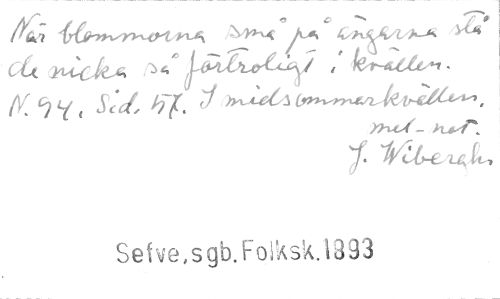 När blommorna små på ängarna stå
de nicka så förtroligt i kvällen.
N. 94, Sid. 57. I midsommarkvällen,
mel-not.
J. Wibergh
Sefve, sgb. Folksk. 1893